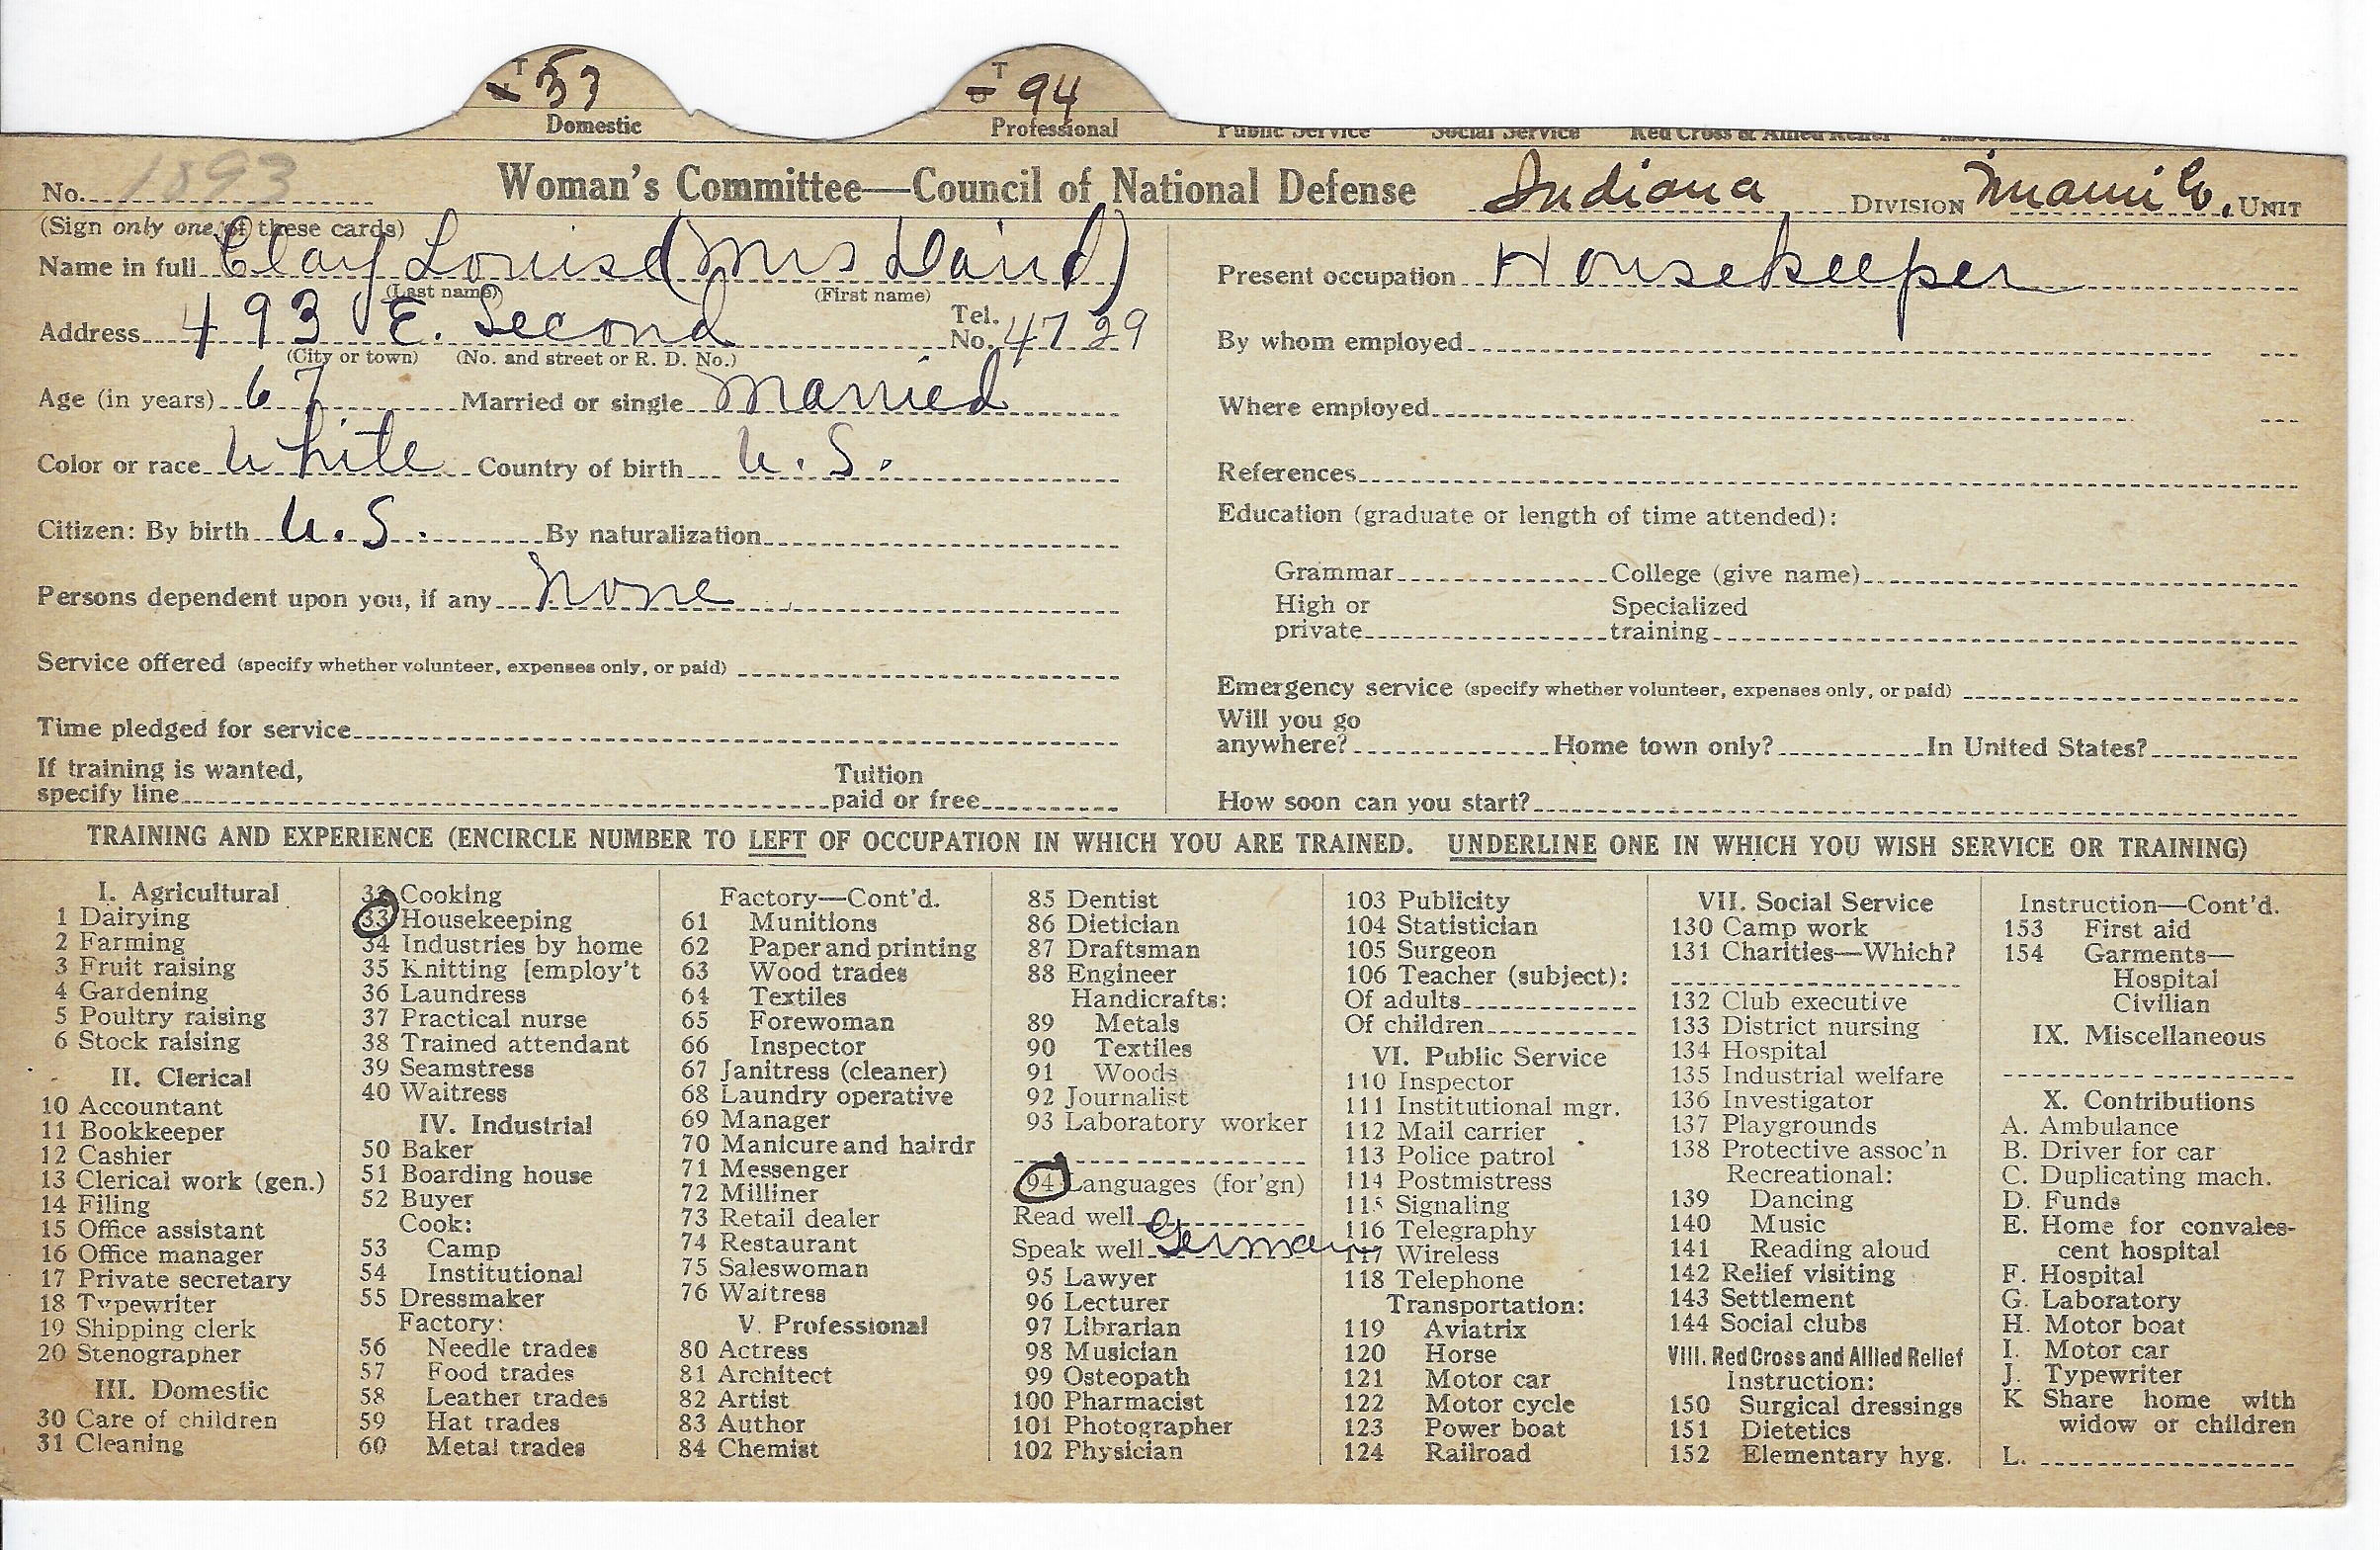 T 33 T 94
Domestic Professional Public Service Social Service Red Cross & Allied Relief
No. 1893 Woman's Committee—Council of National Defense Indiana DIVISION Miami Co. UNIT
(Sign only one of these cards)
Name in full Clay Louise (Mrs David)
(Last name) (First name)
Address 493 E. Second Tel. No. 4729
(City or town) (No. and street or R. D. No.)
Age (in years) 67 Married or single Married
Color or race White Country of birth U.S.
Citizen: By birth U.S. By naturalization
Persons dependent upon you, if any None
Service offered (specify whether volunteer, expenses only, or paid)
Time pledged for service
If training is wanted,
specify line Tuition paid or free
Present occupation Housekeeper
By whom employed
Where employed
References
Education (graduate or length of time attended):
Grammar College (give name)
High or private Specialized training
Emergency service (specify whether volunteer, expenses only, or paid)
Will you go
anywhere? Home town only? In United States?
How soon can you start?
TRAINING AND EXPERIENCE (ENCIRCLE NUMBER TO LEFT OF OCCUPATION IN WHICH YOU ARE TRAINED. UNDERLINE ONE IN WHICH YOU WISH SERVICE OR TRAINING)
I. Agricultural
1 Dairying
2 Farming
3 Fruit raising
4 Gardening
5 Poultry raising
6 Stock raising
II. Clerical
10 Accountant
11 Bookkeeper
12 Cashier
13 Clerical work (gen.)
14 Filing
15 Office assistant
16 Office manager
17 Private secretary
18 Typewriter
19 Shipping clerk
20 Stenographer
III. Domestic
30 Care of children
31 Cleaning
32 Cooking
33 Housekeeping
34 Industries by home
35 Knitting [employ't
36 Laundress
37 Practical nurse
38 Trained attendant
39 Seamstress
40 Waitress
IV. Industrial
50 Baker
51 Boarding house
52 Buyer
Cook:
53 Camp
54 Institutional
55 Dressmaker
Factory:
56 Needle trades
57 Food trades
58 Leather trades
59 Hat trades
60 Metal trades
Factory—Cont'd.
61 Munitions
62 Paper and printing
63 Wood trades
64 Textiles
65 Forewoman
66 Inspector
67 Janitress (cleaner)
68 Laundry operative
69 Manager
70 Manicure and hairdr
71 Messenger
72 Milliner
73 Retail dealer
74 Restaurant
75 Saleswoman
76 Waitress
V. Professional
80 Actress
81 Architect
82 Artist
83 Author
84 Chemist
85 Dentist
86 Dietician
87 Draftsman
88 Engineer
Handicrafts:
89 Metals
90 Textiles
91 Woods
92 Journalist
93 Laboratory worker
94 Languages (for'gn)
Read well
Speak well German
95 Lawyer
96 Lecturer
97 Librarian
98 Musician
99 Osteopath
100 Pharmacist
101 Photographer
102 Physician
103 Publicity
104 Statistician
105 Surgeon
106 Teacher (subject):
Of adults
Of children
VI. Public Service
110 Inspector
111 Institutional mgr.
112 Mail carrier
113 Police patrol
114 Postmistress
115 Signaling
116 Telegraphy
117 Wireless
118 Telephone
Transportation:
119 Aviatrix
120 Horse
121 Motor car
122 Motor cycle
123 Power boat
124 Railroad
VII. Social Service
130 Camp work
131 Charities—Which?
132 Club executive
133 District nursing
134 Hospital
135 Industrial welfare
136 Investigator
137 Playgrounds
138 Protective assoc'n
Recreational:
139 Dancing
140 Music
141 Reading aloud
142 Relief visiting
143 Settlement
144 Social clubs
VIII. Red Cross and Allied Relief
Instruction:
150 Surgical dressings
151 Dietetics
152 Elementary hyg.
Instruction—Cont'd.
153 First aid
154 Garments—
Hospital
Civilian
IX. Miscellaneous
X. Contributions
A. Ambulance
B. Driver for car
C. Duplicating mach.
D. Funds
E. Home for convales-
cent hospital
F. Hospital
G. Laboratory
H. Motor boat
I. Motor car
J. Typewriter
K Share home with
widow or children
L.